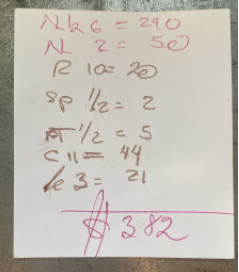 Nk 6 = 240
N 2 = 50
R 10 = 20
SP 1/2 = 2
1/2 = 5
C 11 = 44
le 3 = 21
# 382